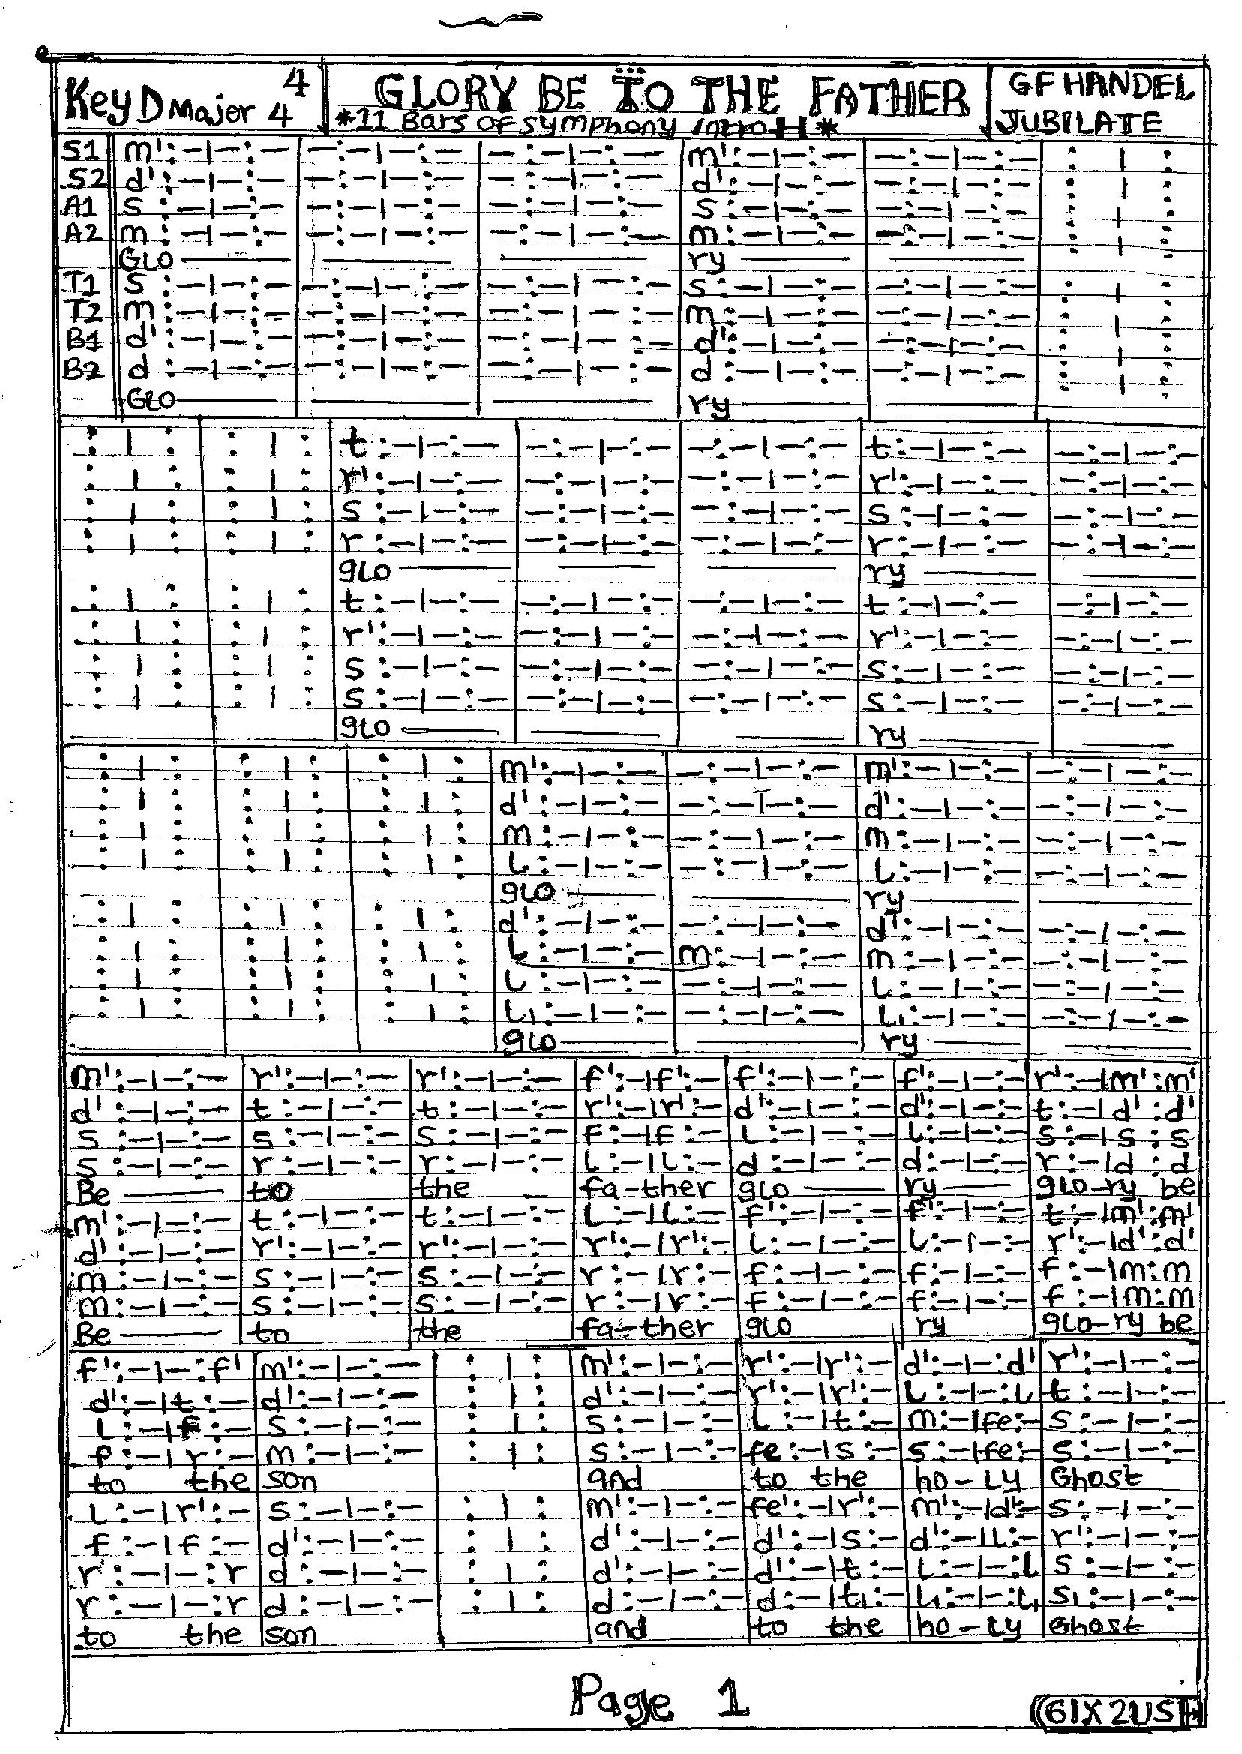 Key D Major 4 4 GLORY BE TO THE FATHER GF HANDEL
*11 Bars of symphony intro H* JUBILATE
S1 m':-|-:- -:-|-:- -:-|-:- m':-|-:- -:-|-:- : | :
S2 d':-|-:- -:-|-:- -:-|-:- d':-|-:- -:-|-:- : | :
A1 s:-|-:- -:-|-:- -:-|-:- s:-|-:- -:-|-:- : | :
A2 m:-|-:- -:-|-:- -:-|-:- m:-|-:- -:-|-:- : | :
GLO ry
T1 s:-|-:- -:-|-:- -:-|-:- s:-|-:- -:-|-:- : | :
T2 m:-|-:- -:-|-:- -:-|-:- m:-|-:- -:-|-:- : | :
B1 d':-|-:- -:-|-:- -:-|-:- d':-|-:- -:-|-:- : | :
B2 d:-|-:- -:-|-:- -:-|-:- d:-|-:- -:-|-:- : | :
GLO ry
: | : : | : t:-|-:- -:-|-:- -:-|-:- t:-|-:- -:-|-:-
: | : : | : r':-|-:- -:-|-:- -:-|-:- r':-|-:- -:-|-:-
: | : : | : s:-|-:- -:-|-:- -:-|-:- s:-|-:- -:-|-:-
: | : : | : r:-|-:- -:-|-:- -:-|-:- r:-|-:- -:-|-:-
glo ry
: | : : | : t:-|-:- -:-|-:- -:-|-:- t:-|-:- -:-|-:-
: | : : | : r':-|-:- -:-|-:- -:-|-:- r':-|-:- -:-|-:-
: | : : | : s:-|-:- -:-|-:- -:-|-:- s:-|-:- -:-|-:-
: | : : | : s:-|-:- -:-|-:- -:-|-:- s:-|-:- -:-|-:-
glo ry
: | : : | : : | : m':-|-:- -:-|-:- m':-|-:- -:-|-:-
: | : : | : : | : d':-|-:- -:-|-:- d':-|-:- -:-|-:-
: | : : | : : | : m:-|-:- -:-|-:- m:-|-:- -:-|-:-
: | : : | : : | : l:-|-:- -:-|-:- l:-|-:- -:-|-:-
glo ry
: | : : | : : | : d':-|-:- -:-|-:- d':-|-:- -:-|-:-
: | : : | : : | : l:-|-:- m:-|-:- m:-|-:- -:-|-:-
: | : : | : : | : l:-|-:- -:-|-:- l:-|-:- -:-|-:-
: | : : | : : | : l,:-|-:- -:-|-:- l,:-|-:- -:-|-:-
glo ry
m':-|-:- r':-|-:- r':-|-:- f':-|f':- f':-|-:- f':-|-:- r':-|m':m'
d':-|-:- t:-|-:- t:-|-:- r':-|r':- d':-|-:- d':-|-:- t:-|d':d'
s:-|-:- s:-|-:- s:-|-:- f:-|f:- l:-|-:- l:-|-:- s:-|s:s
s:-|-:- r:-|-:- r:-|-:- l:-|l:- d:-|-:- d:-|-:- r:-|d:d
Be to the fa-ther glo ry glo-ry be
m':-|-:- t:-|-:- t:-|-:- l:-|l:- f':-|-:- f':-|-:- t:-|m':m'
d':-|-:- r':-|-:- r':-|-:- r':-|r':- l:-|-:- l:-|-:- r':-|d':d'
m:-|-:- s:-|-:- s:-|-:- r:-|r:- f:-|-:- f:-|-:- f:-|m:m
m:-|-:- s:-|-:- s:-|-:- r:-|r:- f:-|-:- f:-|-:- f:-|m:m
Be to the fa-ther glo ry glo-ry be
f':-|-:f' m':-|-:- : | : m':-|-:- r':-|r':- d':-|-:d' r':-|-:-
d':-|t:- d':-|-:- : | : d':-|-:- r':-|r':- l:-|-:l t:-|-:-
l:-|f:- s:-|-:- : | : s:-|-:- l:-|t:- m:-|fe:- s:-|-:-
f:-|r:- m:-|-:- : | : s:-|-:- fe:-|s:- s:-|fe:- s:-|-:-
to the son and to the ho-ly Ghost
l:-|r':- s:-|-:- : | : m':-|-:- fe':-|r':- m':-|d':- s:-|-:-
f:-|f:- d':-|-:- : | : d':-|-:- d':-|s:- d':-|l:- r':-|-:-
r:-|-:r d:-|-:- : | : d':-|-:- d':-|t:- l:-|-:l s:-|-:-
r:-|-:r d:-|-:- : | : d:-|-:- d:-|t,:- l,:-|-:l, s,:-|-:-
to the son and to the ho-ly Ghost
Page 1